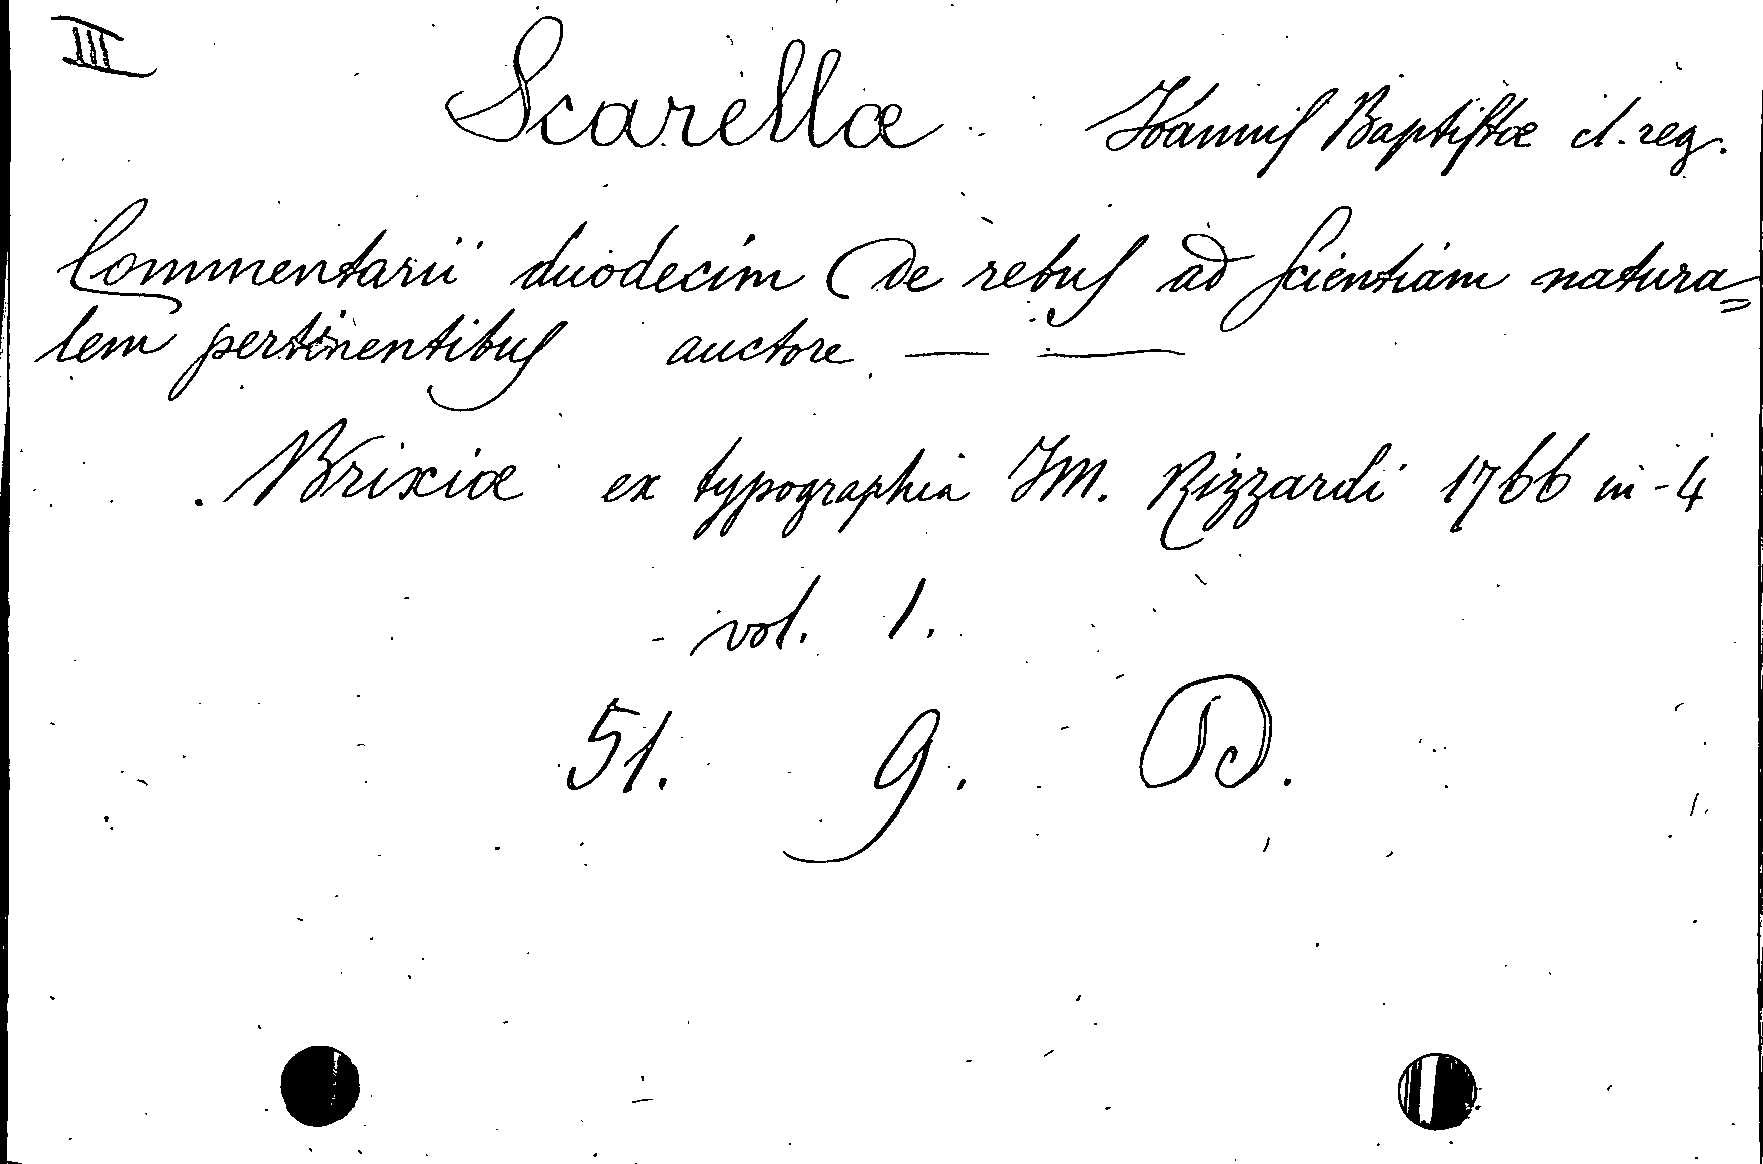 III
Scarellæ Ioannis Baptistæ cl. reg.
Commentarii duodecim De rebus ad scientiam natura=
lem pertinentibus auctore — —
Brixiæ ex typographia IM. Rizzardi 1766 in-4
vol. 1.
51. 9. D.